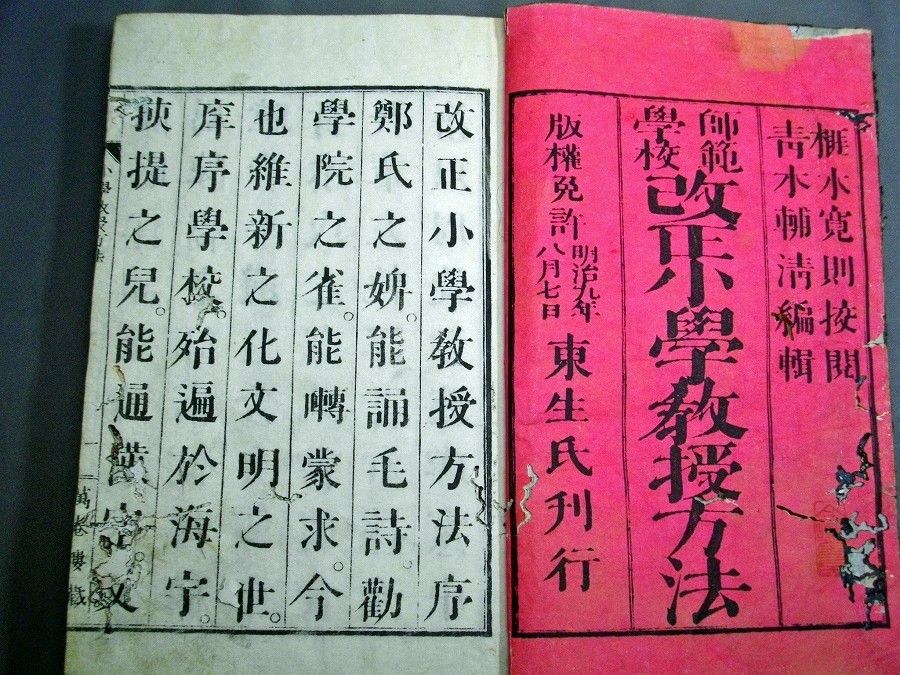 榧木寛則挍閲
青木輔清編輯
師範學校 改正小學教授方法
版權免許 明治九年八月七日 東生氏刋行
改正小學敎授方法序
鄭氏之婢。能誦毛詩。勸
學院之雀。能囀蒙求。今
也維新之化文明之世。
庠序學校。殆遍於海宇。
挾提之兒。能通
小學敎授方法
一
萬老樓藏